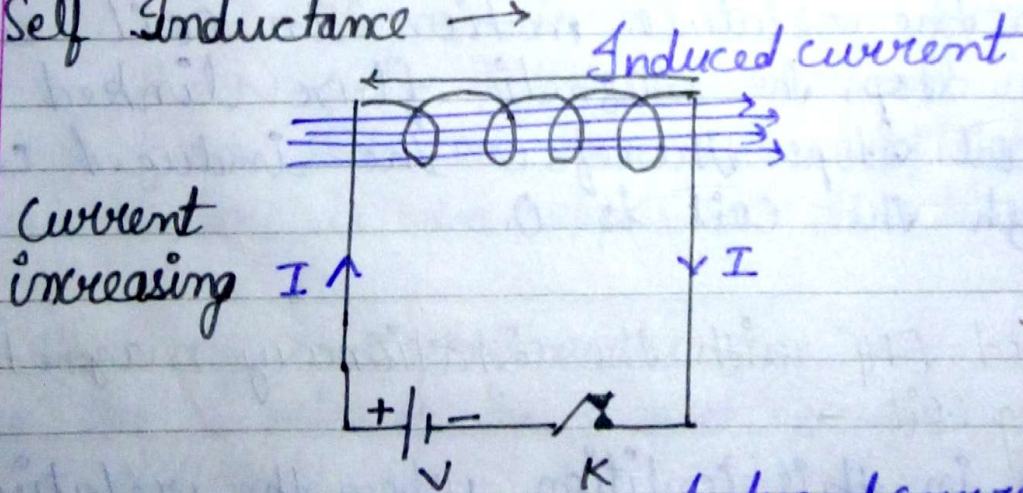 Self Inductance →
Induced current
Current
increasing
I
I
+
−
V
K